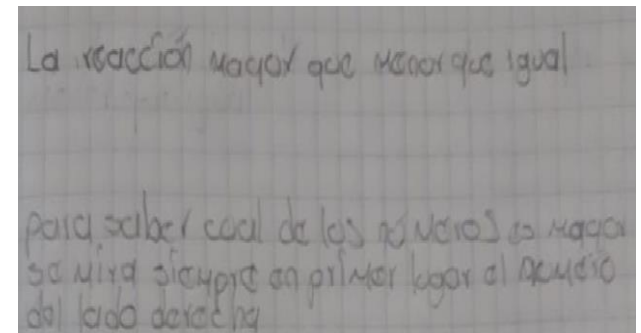 La reacción mayor que menor que igual
para saber cual de los números es mayor
se mira siempre en primer lugar el número
del lado derecha